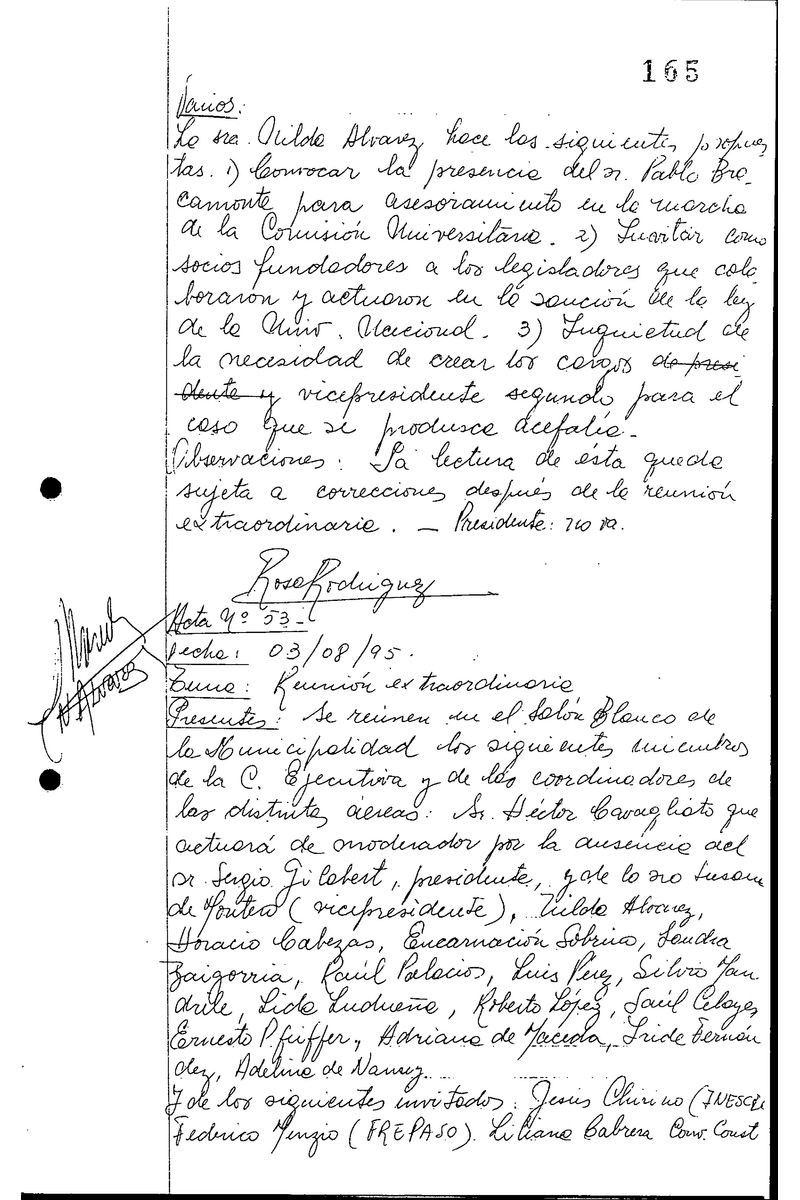 165
Varios:
La sra. Nilda Alvarez hace las siguientes propues
tas. 1) Convocar la presencia del sr. Pablo Bra-
camonte para asesoramiento en la marcha
de la Comisión Universitaria. 2) Invitar como
socios fundadores a los legisladores que cola
boraron y actuaron en la sanción de la ley
de la Univ. Nacional. 3) Inquietud de
la necesidad de crear los cargos de presi-
dente y vicepresidente segundo para el
caso que se produsca acefalía.
Observaciones: La lectura de ésta queda
sujeta a correcciones después de la reunión
extraordinaria. — Presidente: no va.
Rosa Rodriguez
Acta Nº 53-
Fecha: 03/08/95.
N Alvarez
Tema: Reunión extraordinaria
Presentes: Se reúnen en el Salón Blanco de
la Municipalidad los siguientes miembros
de la C. Ejecutiva y de los coordinadores de
las distintas áereas: Sr. Héctor Cavagliato que
actuará de moderador por la ausencia del
sr. Sergio Gilabert, presidente, y de la sra Susana
de Montero (vicepresidente), Nilda Alvarez,
Horacio Cabezas, Encarnación Sobrino, Sandra
Baigorria, Raúl Palacios, Luis Pérez, Silvia Man
drile, Lida Ludueña, Roberto López, Saúl Celayes
Ernesto Pfeiffer, Adriana de Maceda, Iride Fernán
dez, Adelina de
Y de los siguientes invitados: Jesús Chirino (INESCER
Federico (FREPASO). Liliana Cabrera Conv. Const